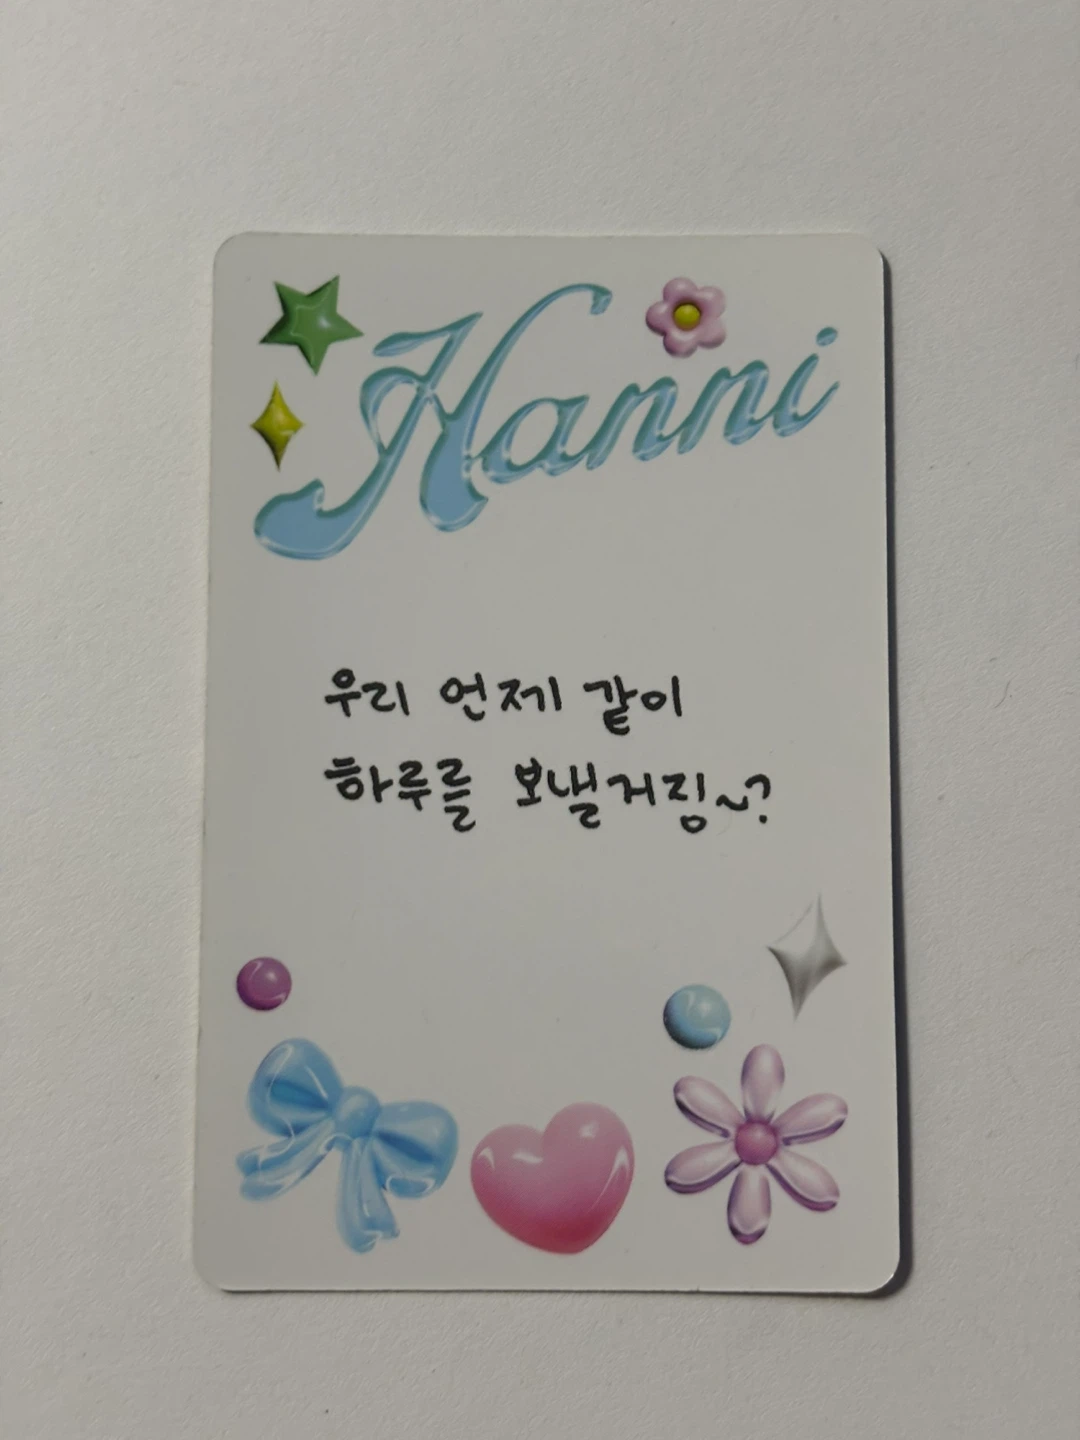 Hanni
우리 언제 같이
하루를 보낼거징~?